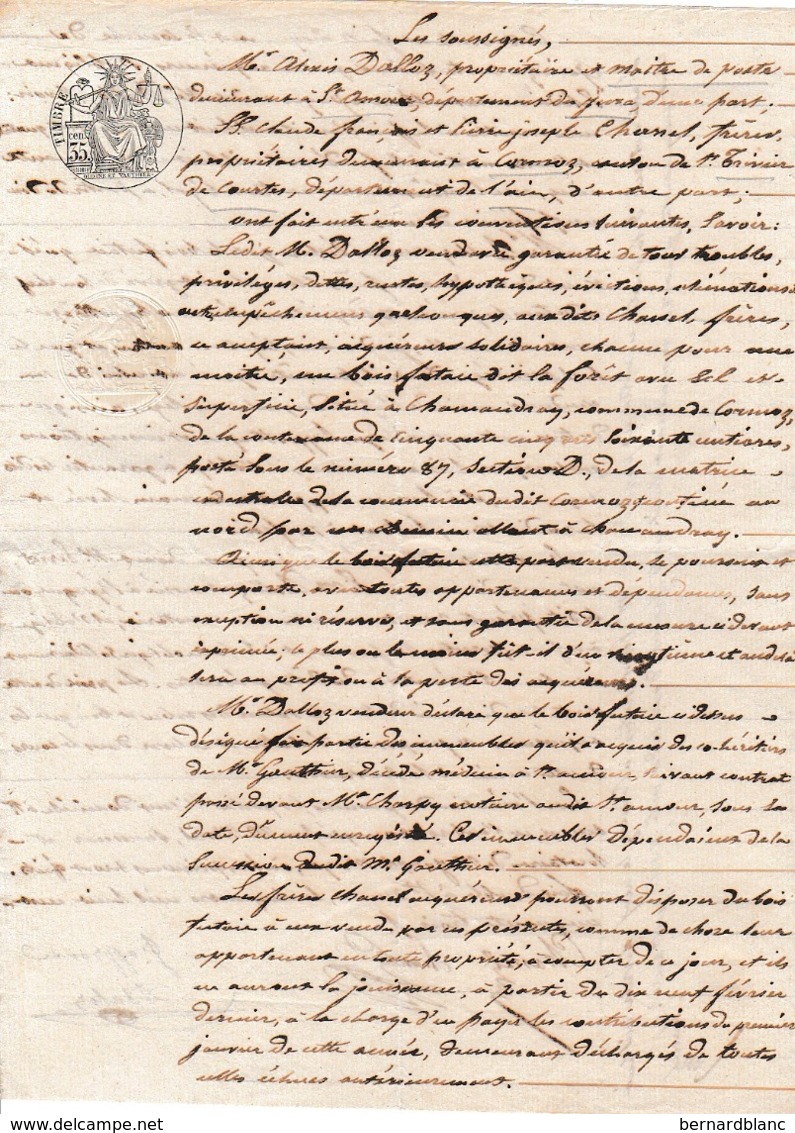 Les soussignés,
Mr. Alexis Dalloz, propriétaire et maître de poste
demeurant à St. Amour, département du Jura, d'une part,
SS. Claude françois et Pierre joseph Chassel, frères,
propriétaires demeurant à Cormoz, canton de St. Trivier
de Courtes, département de l'ain, d'autre part;
ont fait entr'eux les conventions suivantes, Savoir:
Ledit M. Dalloz vend avec garantie de tous troubles,
privilèges, dettes, rentes, hypothèques, évictions, aliénations &
autres empêchemens quelconques, aux dits Chassel, frères,
ce acceptant, acquéreurs solidaires, chacun pour une
moitié, un bois futaie dit la forêt avec Sol et
Superficie, Situé à Chamandray, commune de Cormoz,
de la contenance de Cinquante cinq ares Soixante centiares,
porté Sous le numéro 87, Section D., de la matrice
cadastrale de la commune du dit Cormoz, confiné au
nord par un chemin allant à Chamandray.
Ainsi que le bois futaie cette part vendu, se poursuit et
comporte, avec toutes appartenances et dépendances, sans
exception ni réserve, et sans garantie de la mesure ci devant
exprimée; le plus ou le moins fût-il d'un vingtième et au delà
sera au profit ou à la perte des acquéreurs.
Mr. Dalloz vendeur déclare que le bois futaie ci dessus
désigné fais partie des immeubles qu'il a acquis des co-héritiers
de Mr. Gauthier, décédé médecin à St. amour, Suivant contrat
passé devant Me. Charpy notaire audit St. amour, sous sa
date, dûment enregistré. Ces immeubles dépendaient de la
Succession dudit Mr. Gauthier.
Les frères Chassel acquéreurs pourront disposer du bois
futaie à eux vendu par ces présentes, comme de chose leur
appartenant en toute propriété, à compter de ce jour, et ils
en auront la jouissance, à partir du dix neuf février
dernier, à la charge d'en payer les contributions du premier
janvier de cette année, demeurans déchargés de toutes
celles échues antérieurement.
TIMBRE
35
cen.
bernardblanc